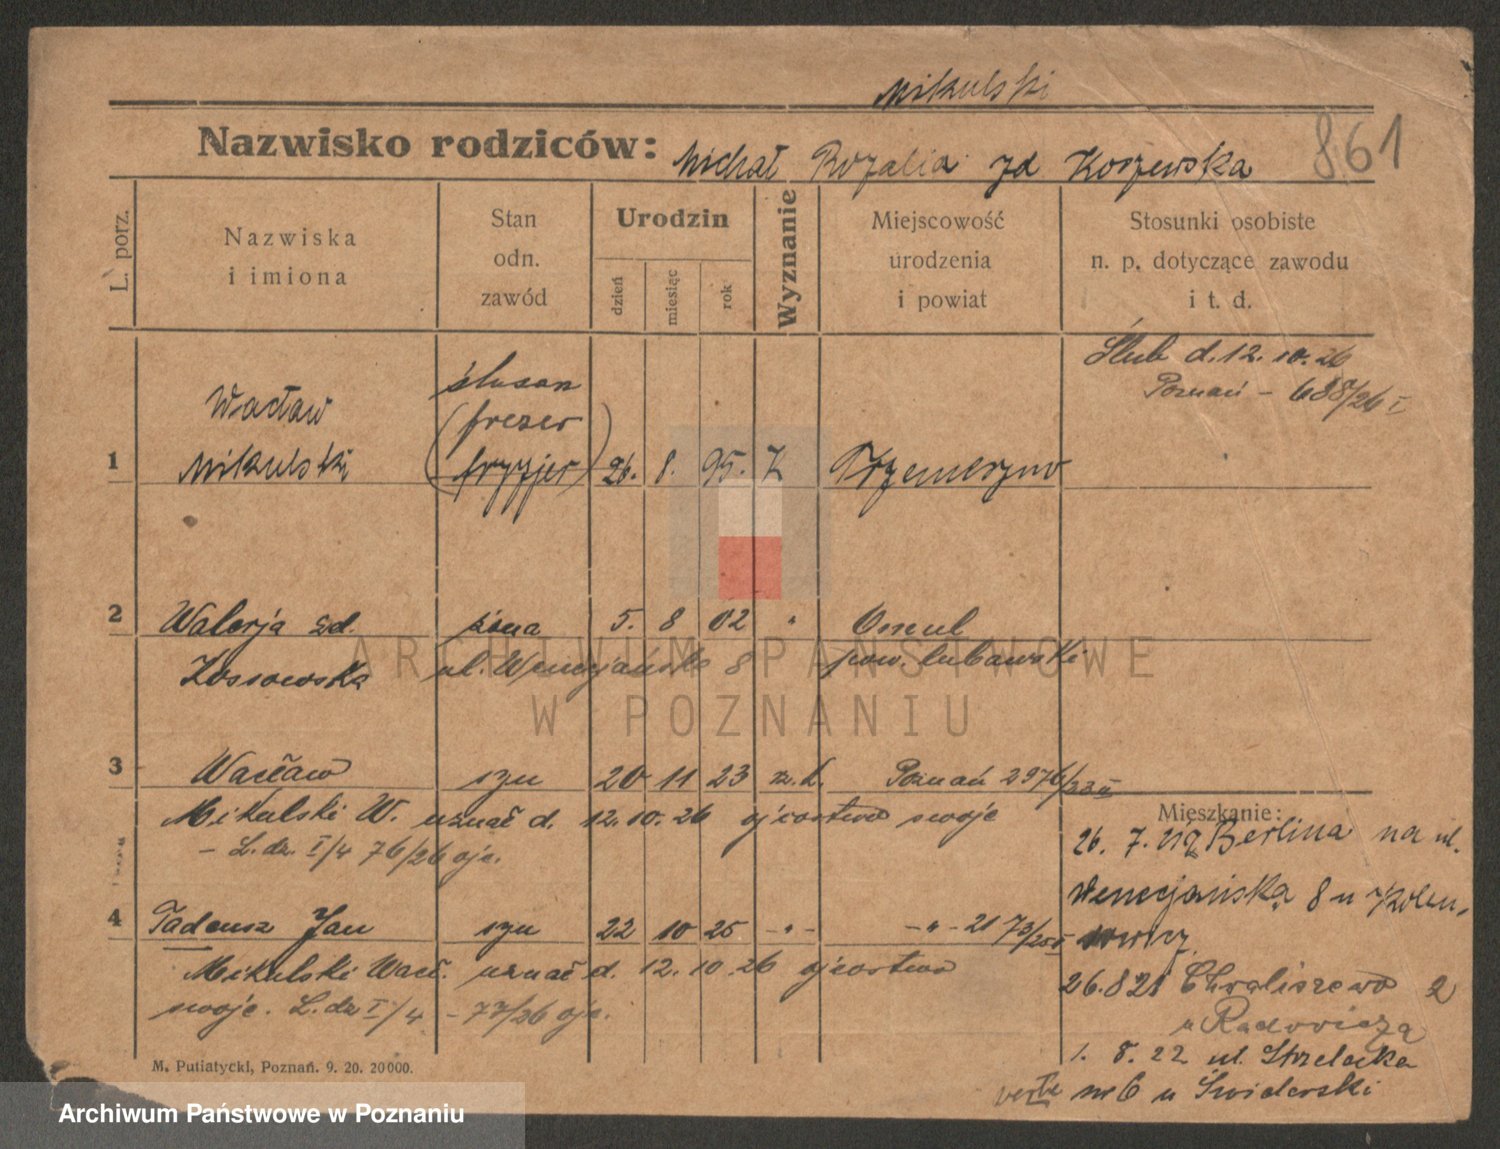 Mikulski
Nazwisko rodziców: Michał Rozalia zd Koszewska
861
L. porz.
Nazwiska i imiona
Stan odn. zawód
Urodzin
dzień
miesiąc
rok
Wyznanie
Miejscowość urodzenia i powiat
Stosunki osobiste n. p. dotyczące zawodu i t. d.
Ślub d. 12. 10. 26
Poznań - 688/26 I
1
Wacław
Mikulski
ślusarz
(frezer
fryzjer)
26. 8. 95. K
Trzemeszno
2
Walerja zd. żona 5. 8 02 "
Kossowska ul. Wenecjańska 8 pow. lubawski
3
Wacław syn 20 11 23 r. k. Poznań 2976/23 II
Mikulski W. uznał d. 12. 10. 26 ojcostwo swoje
- L. dz. I/4 76/26 ojc.
4
Tadeusz Jan syn 22 10 25 - " - - " - 2173/25 II
Mikulski Wacł. uznał d. 12. 10. 26 ojcostwo
swoje. L. dz I/4 - 77/26 ojc.
Mieszkanie:
26. 7. 21 z Berlina na ul.
Wenecjańską 8 u
26.8 21 Chwaliszewo 2
u Radowicza
1. 8. 22 ul. Strzelecka
verte nr 6 u Świderski
M. Putiatycki, Poznań. 9. 20. 20000.
ARCHIWUM PAŃSTWOWE
W POZNANIU
Archiwum Państwowe w Poznaniu